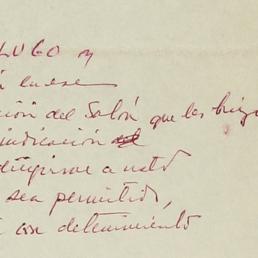 LUGO y
en ese
ción del Salón que les
indicación
dirigirme a usted
sea permitido,
con detenimiento